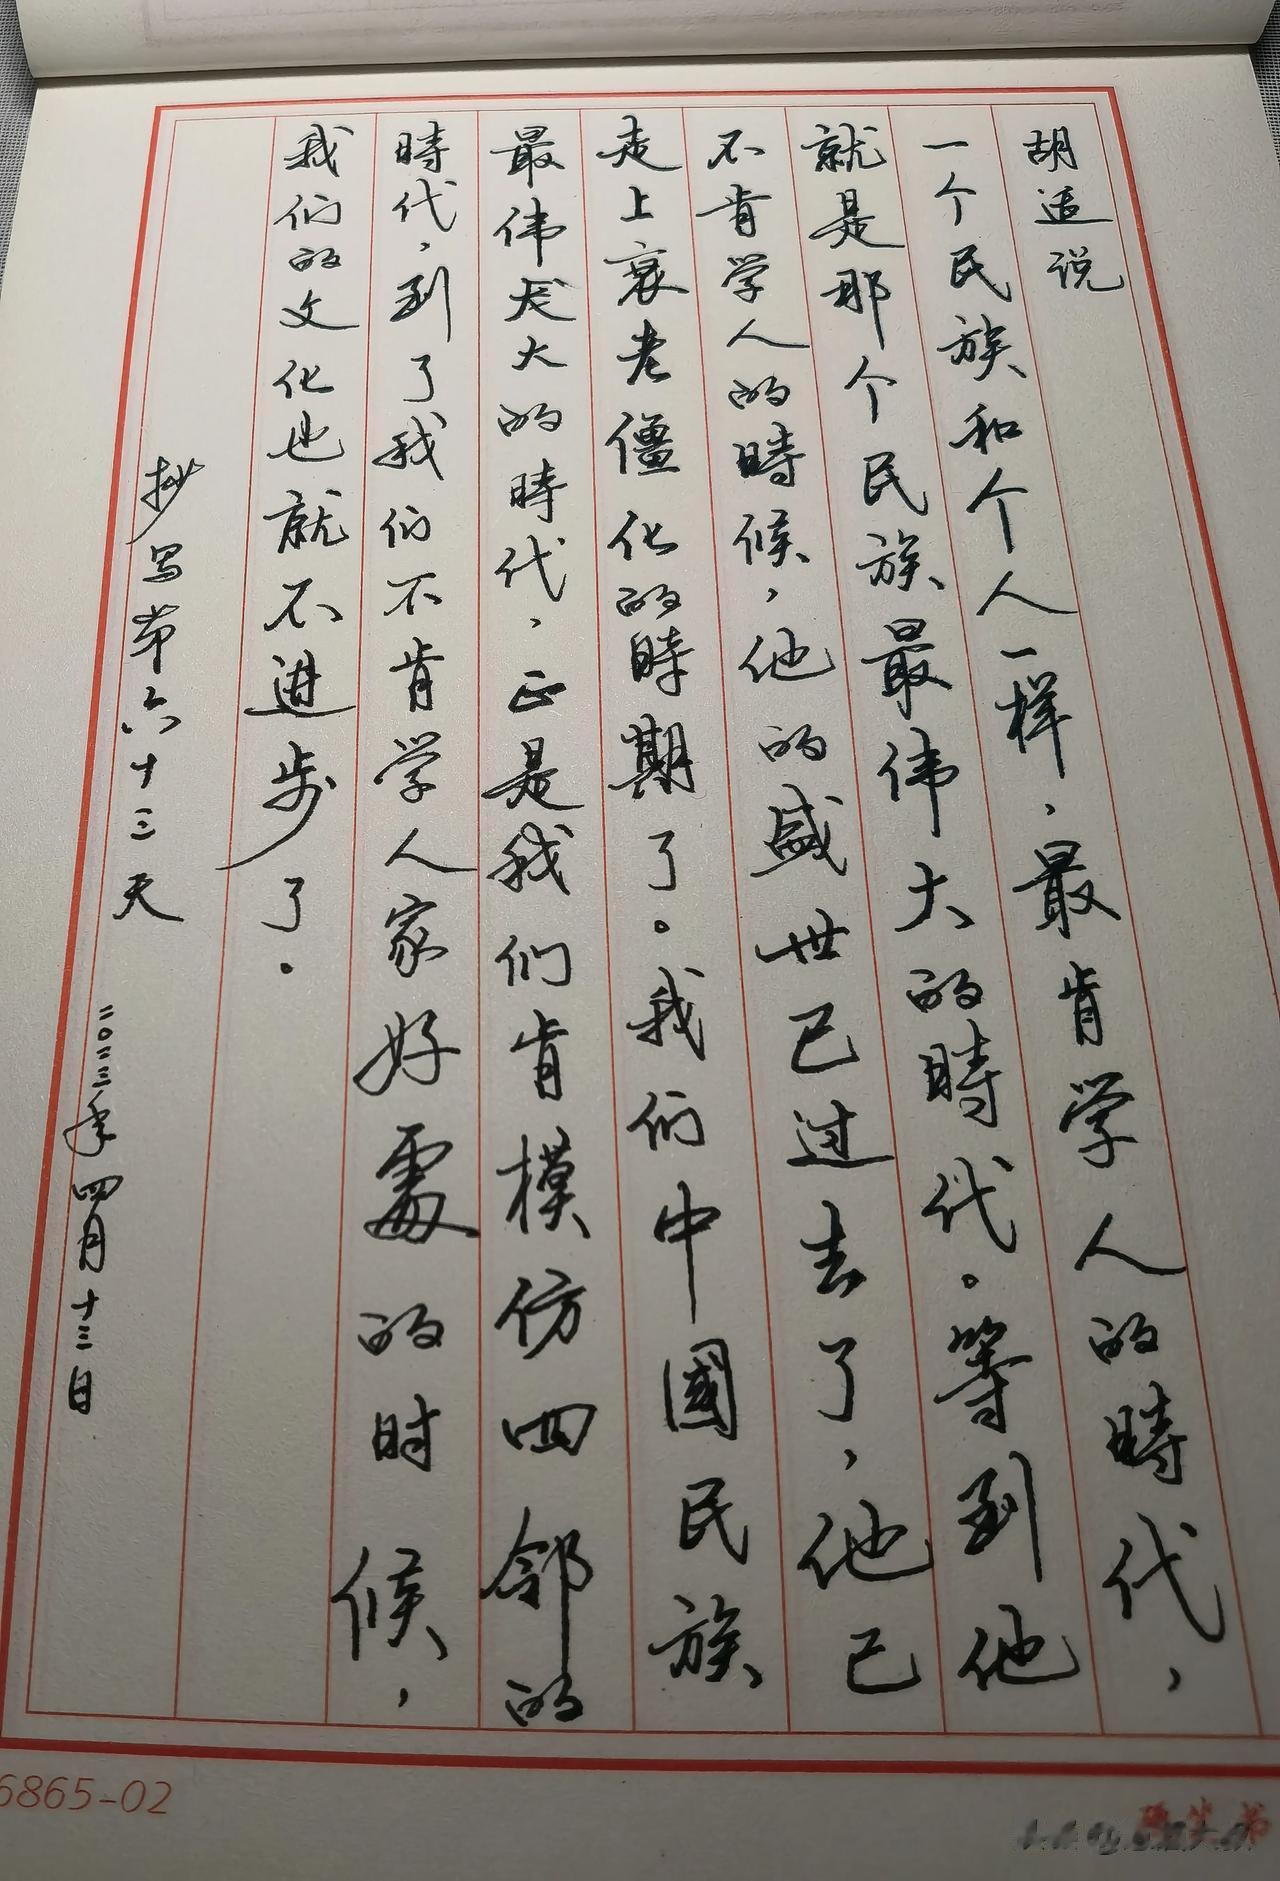 胡适说
一个民族和个人一样，最肯学人的時代，
就是那个民族最伟大的時代。等到他
不肯学人的時候，他的盛世已过去了，他已
走上衰老僵化的時期了。我们中國民族
最伟大的時代，正是我们肯模仿四邻的
時代，到了我们不肯学人家好處的时候，
我们的文化也就不进步了。
抄写第六十三天
二〇二三年四月十三日
6865-02